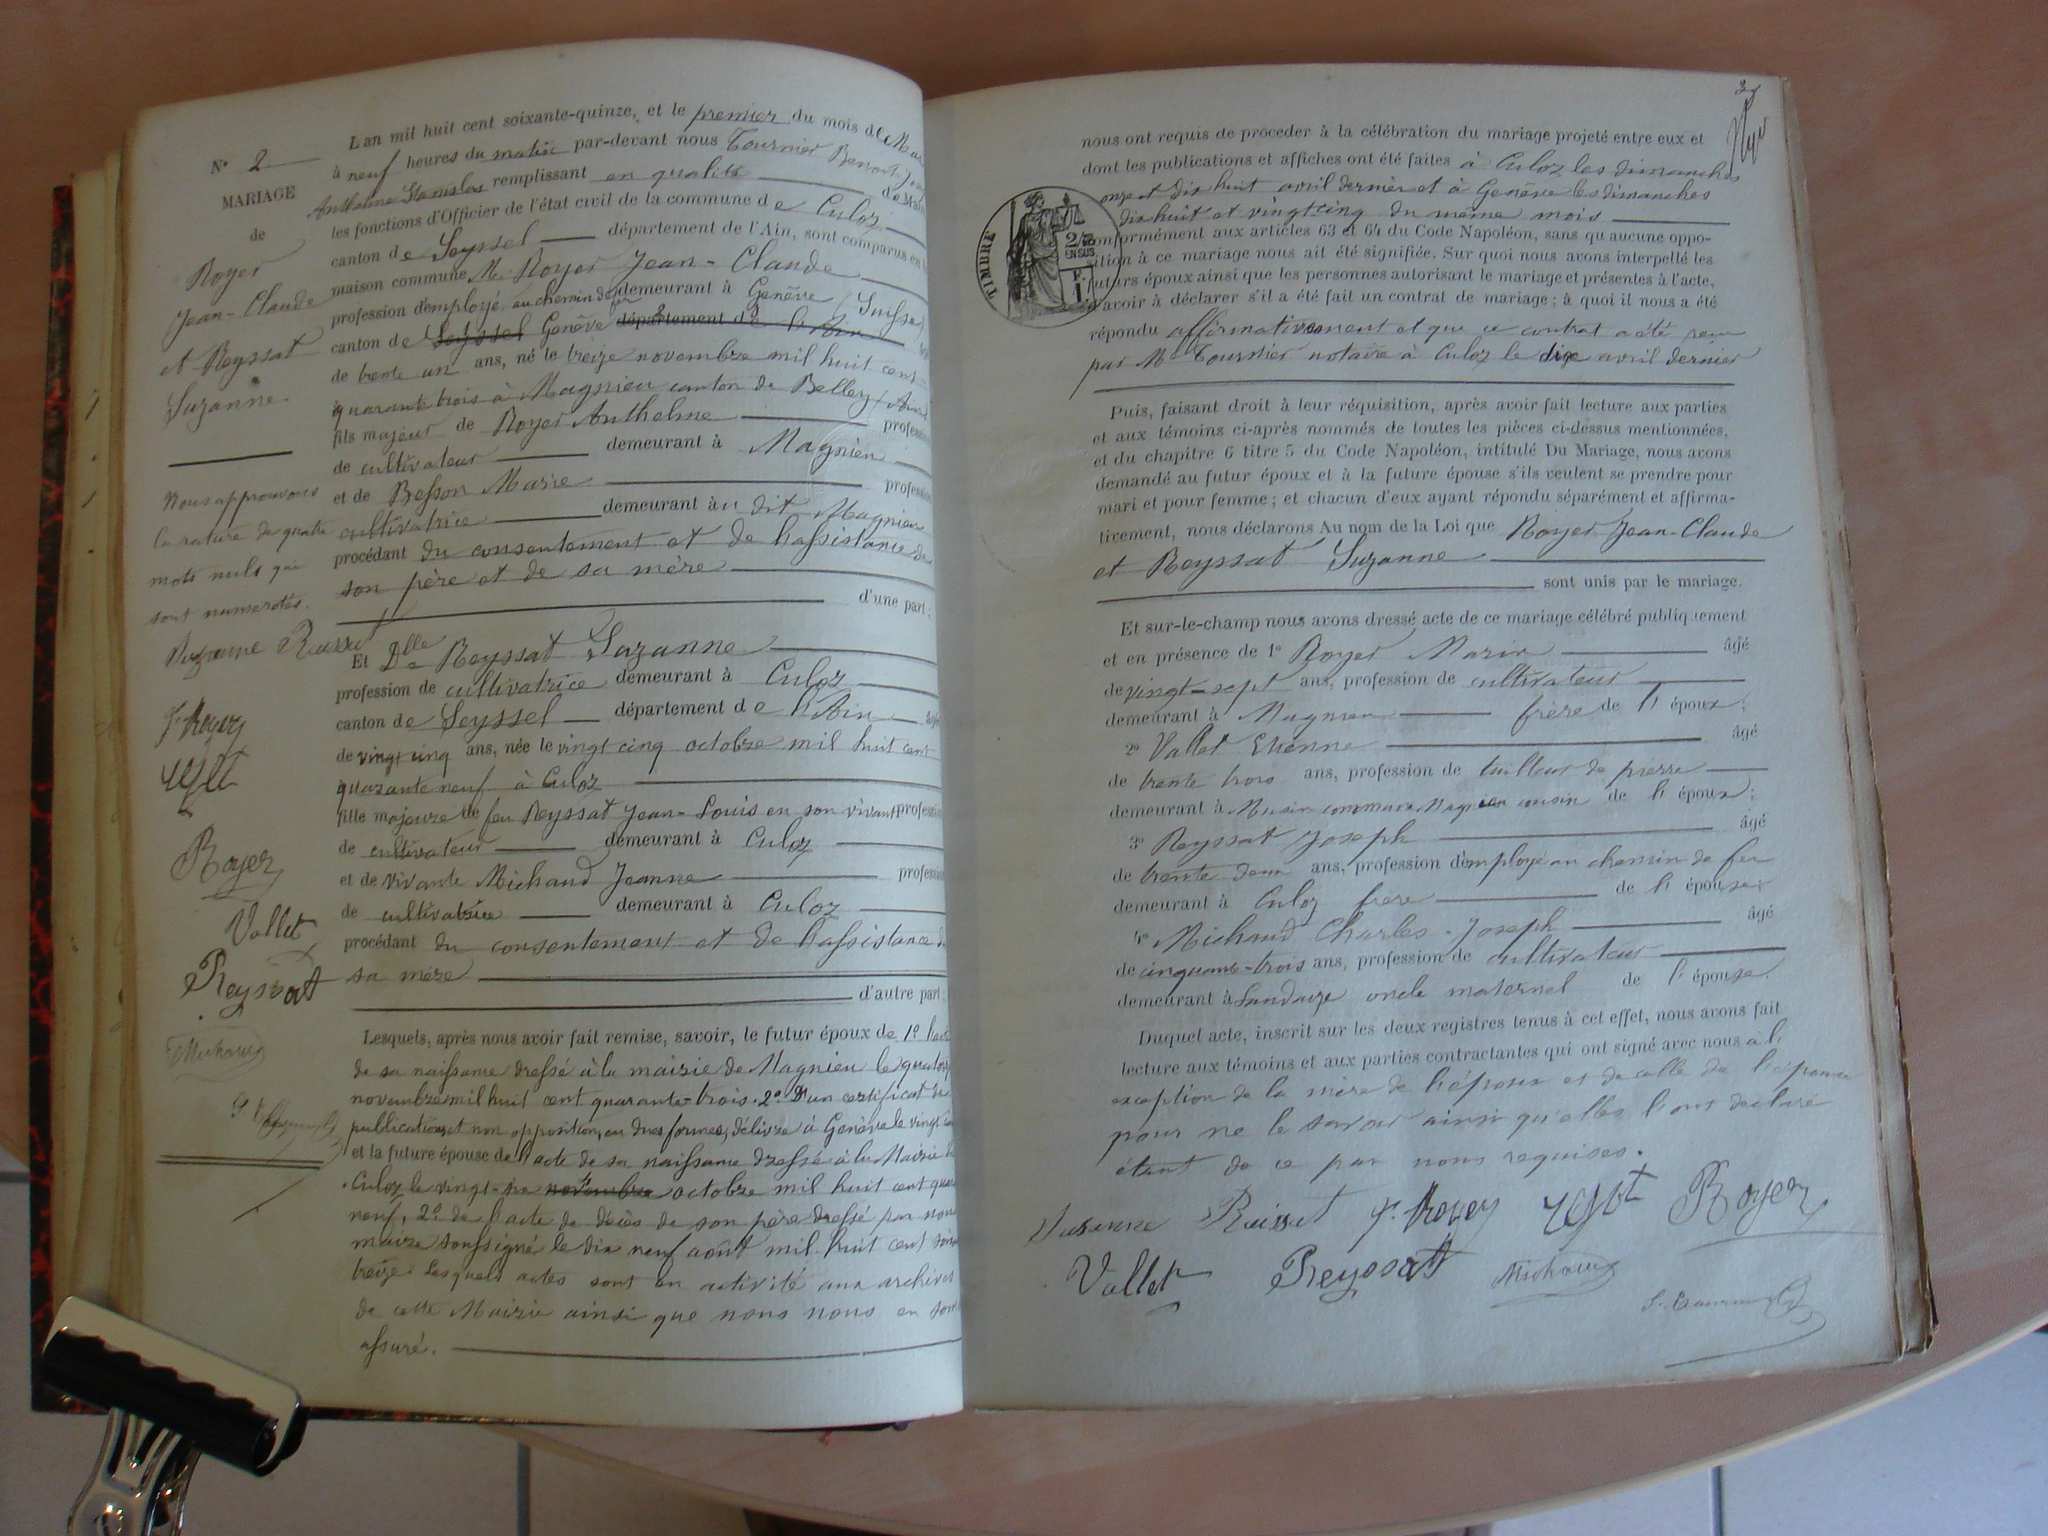 N° 2
MARIAGE
de
Royer
Jean-Claude
et Reyssat
Suzanne
Nous approuvons
la rature de quatre
mots nuls qui
sont numerotés.
L'an mil huit cent soixante-quinze, et le premier du mois de
à neuf heures du matin par-devant nous Tournier
Anthelme Stanislas remplissant en qualité de
les fonctions d'Officier de l'état civil de la commune de Culoz
canton de Seyssel département de l'Ain, sont comparus en
maison commune M. Royer Jean-Claude
profession d'employé au chemin de fer demeurant à Genève (Suisse)
canton de Seyssel Genève département de
de trente un ans, né le treize novembre mil huit cent
quarante trois à Magnieu canton de Belley (Ain)
fils majeur de Royer Anthelme profession
de cultivateur demeurant à Magnieu
et de Besson Marie profession
cultivatrice demeurant au dit Magnieu
procédant du consentement et de l'assistance de
son père et de sa mère
d'une part;
Et Dlle Reyssat Suzanne
profession de cultivatrice demeurant à Culoz
canton de Seyssel département de l'Ain âgée
de vingt cinq ans, née le vingt cinq octobre mil huit cent
quarante neuf à Culoz
fille majeure de feu Reyssat Jean-Louis en son vivant profession
de cultivateur demeurant à Culoz
et de vivante Michaud Jeanne profession
de cultivatrice demeurant à Culoz
procédant du consentement et de l'assistance de
sa mère
d'autre part;
Lesquels, après nous avoir fait remise, savoir, le futur époux de 1° l'acte
de sa naissance dressé à la mairie de Magnieu le quatorze
novembre mil huit cent quarante-trois. 2° D'un certificat de
publication et non opposition, en dues formes, délivré à Genève le vingt
et la future épouse de l'acte de sa naissance dressé à la Mairie de
Culoz le vingt-six novembre octobre mil huit cent quarante
neuf, 2° de l'acte de décès de son père dressé par nous
maire soussigné le dix neuf août mil huit cent soixante
treize. Lesquels actes sont en activité aux archives
de cette Mairie ainsi que nous nous en sommes
assuré.
Royer
Vallet
Reyssat
Michaud
nous ont requis de procéder à la célébration du mariage projeté entre eux et
dont les publications et affiches ont été faites à Culoz les dimanches
onze et dix huit avril dernier et à Genève les dimanches
dix huit et vingt cinq du même mois
conformément aux articles 63 et 64 du Code Napoléon, sans qu'aucune oppo-
sition à ce mariage nous ait été signifiée. Sur quoi nous avons interpellé les
futurs époux ainsi que les personnes autorisant le mariage et présentes à l'acte,
d'avoir à déclarer s'il a été fait un contrat de mariage; à quoi il nous a été
répondu affirmativement et que ce contrat a été reçu
par Me Tournier notaire à Culoz le dix avril dernier
TIMBRE
2/10
EN SUS
F.
1
Puis, faisant droit à leur réquisition, après avoir fait lecture aux parties
et aux témoins ci-après nommés de toutes les pièces ci-dessus mentionnées,
et du chapitre 6 titre 5 du Code Napoléon, intitulé Du Mariage, nous avons
demandé au futur époux et à la future épouse s'ils veulent se prendre pour
mari et pour femme; et chacun d'eux ayant répondu séparément et affirma-
tivement, nous déclarons Au nom de la Loi que Royer Jean-Claude
et Reyssat Suzanne
sont unis par le mariage.
Et sur-le-champ nous avons dressé acte de ce mariage célébré publiquement
et en présence de 1° Royer Marin âgé
de vingt-sept ans, profession de cultivateur
demeurant à Magnieu frère de l'époux;
2° Vallet Etienne âgé
de trente trois ans, profession de tailleur de pierre
demeurant à Musin commune Magnieu cousin de l'époux;
3° Reyssat Joseph âgé
de trente deux ans, profession d'employé au chemin de fer
demeurant à Culoz frère de l'épouse;
4° Michaud Charles-Joseph âgé
de cinquante-trois ans, profession de cultivateur
demeurant à Landaize oncle maternel de l'épouse.
Duquel acte, inscrit sur les deux registres tenus à cet effet, nous avons fait
lecture aux témoins et aux parties contractantes qui ont signé avec nous à l'
exception de la mère de l'époux et de celle de l'épouse
pour ne le savoir ainsi qu'elles l'ont declaré
étant de ce par nous requises.
Royer
Vallet Reyssat Michaud